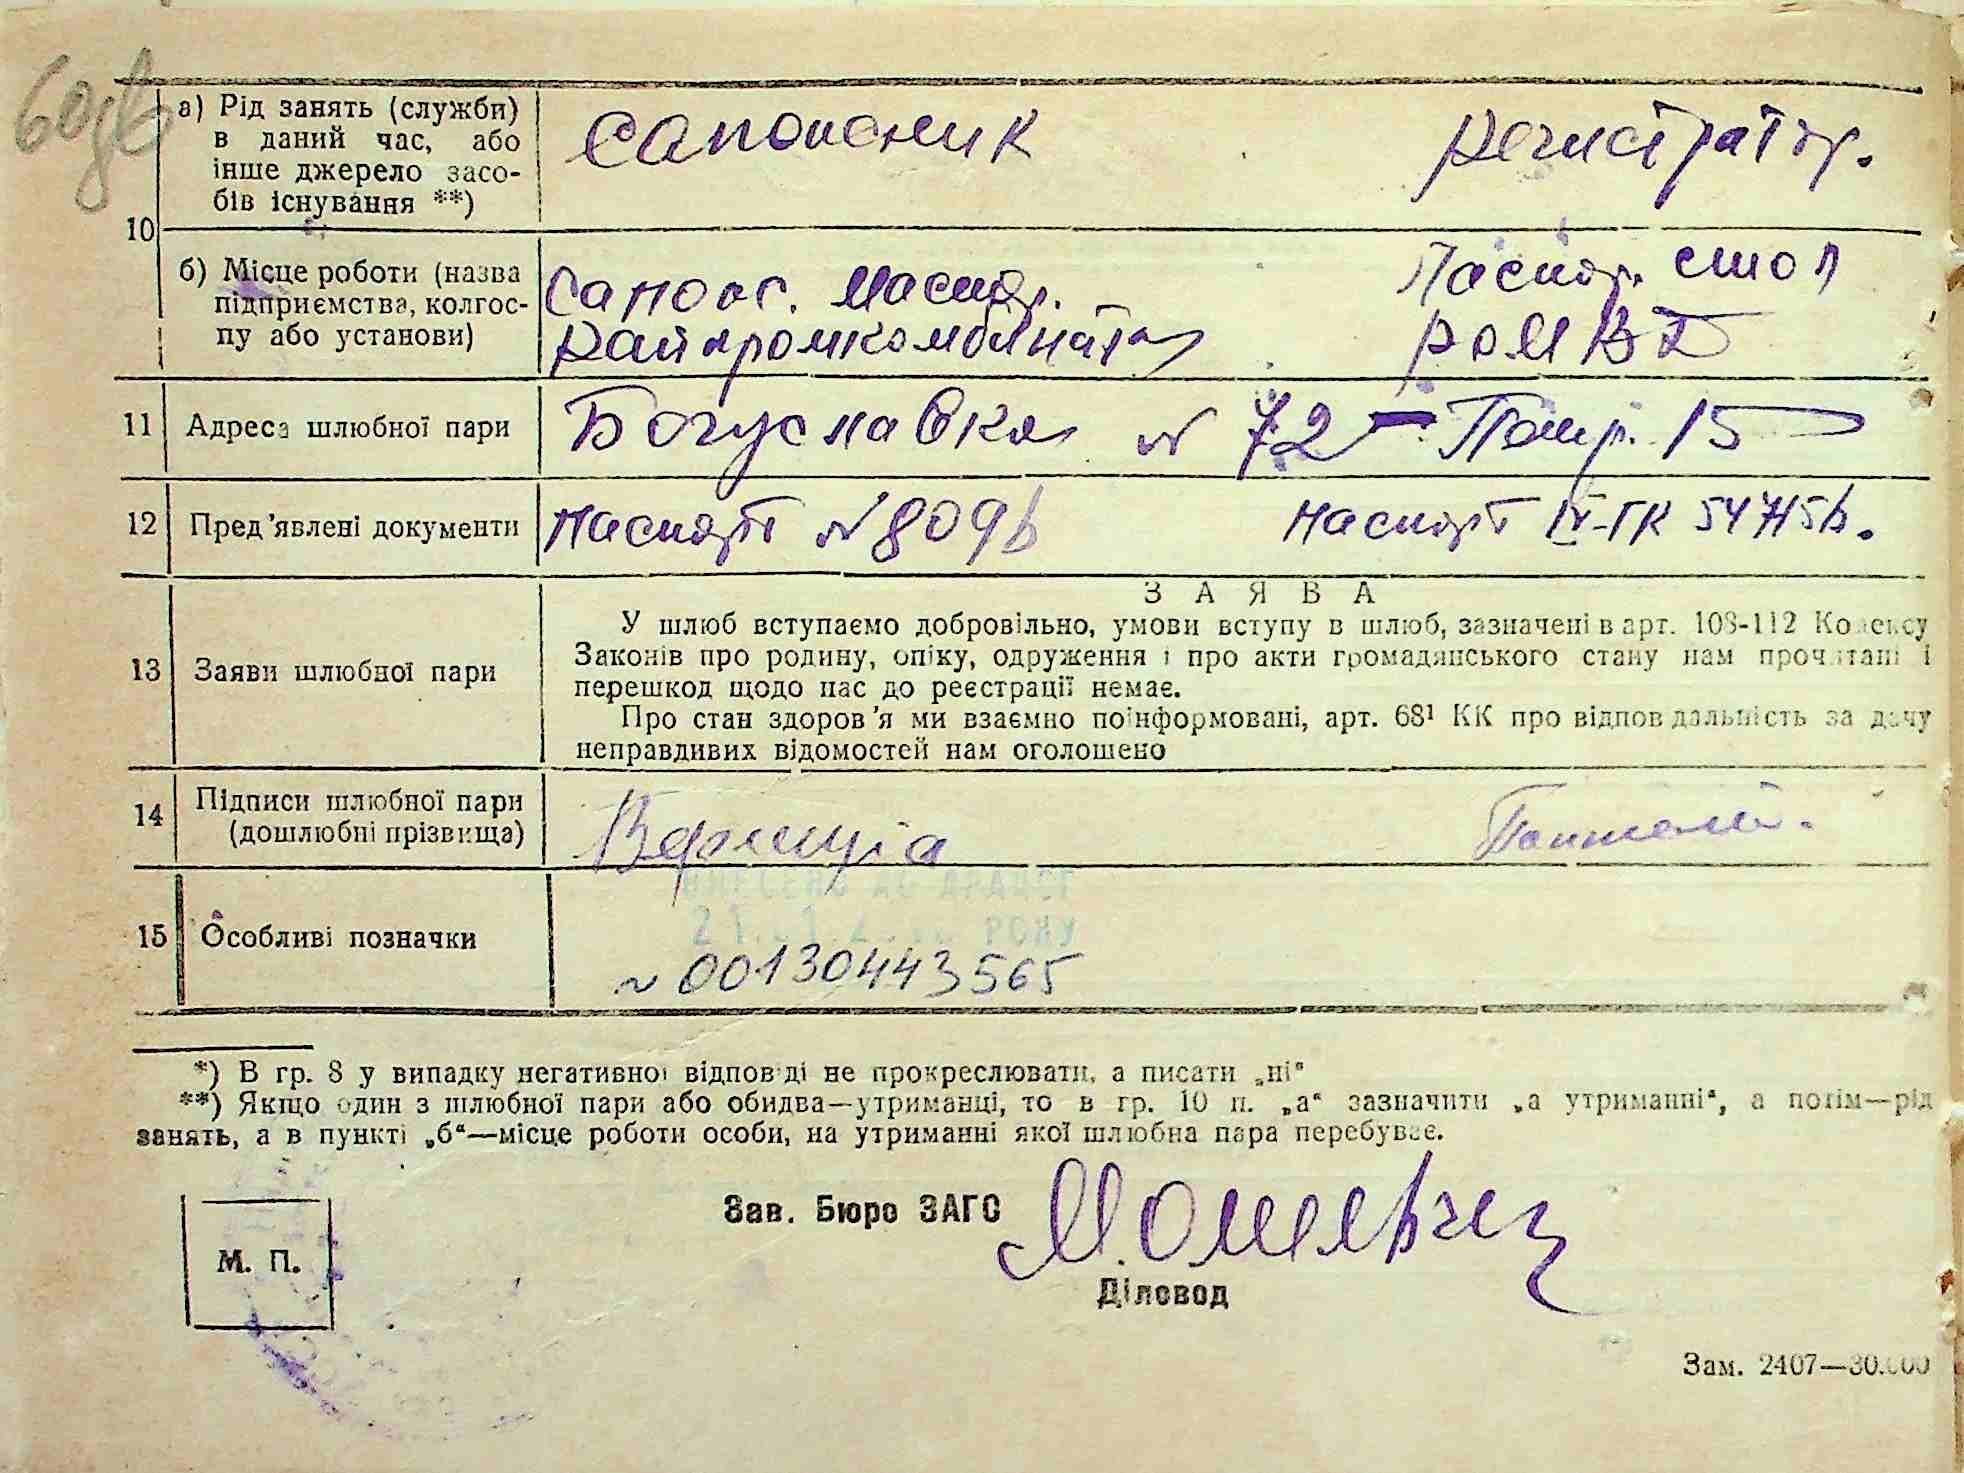 а) Рід занять (служби)
в даний час, або
інше джерело засо-
бів існування **)
сапожник
регистратор.
10
б) Місце роботи (назва
підприємства, колгос-
пу або установи)
Сапож. Мастер.
Райпромкомбіната
Паспор. стол
РОМВД
11 Адреса шлюбної пари
Богуславка № 72 15
12 Пред'явлені документи
Паспорт № 809
Паспорт IV-ГК
13 Заяви шлюбної пари
ЗАЯВА
У шлюб вступаємо добровільно, умови вступу в шлюб, зазначені в арт. 108-112 Кодексу
Законів про родину, опіку, одруження і про акти громадянського стану нам прочитані і
перешкод щодо нас до реєстрації немає.
Про стан здоров'я ми взаємно поінформовані, арт. 68¹ КК про відповідальність за дачу
неправдивих відомостей нам оголошено
14 Підписи шлюбної пари
(дошлюбні прізвища)
15 Особливі позначки
ВНЕСЕНО ДО ДРАЦСГ
РОКУ
№ 00130443565
*) В гр. 8 у випадку негативної відповіді не прокреслювати, а писати „ні“
**) Якщо один з шлюбної пари або обидва—утриманці, то в гр. 10 п. „а“ зазначити „а утриманні“, а потім—рід
занять, а в пункті „б“—місце роботи особи, на утриманні якої шлюбна пара перебуває.
Зав. Бюро ЗАГС
М. П.
Діловод
Зам. 2407—30.000